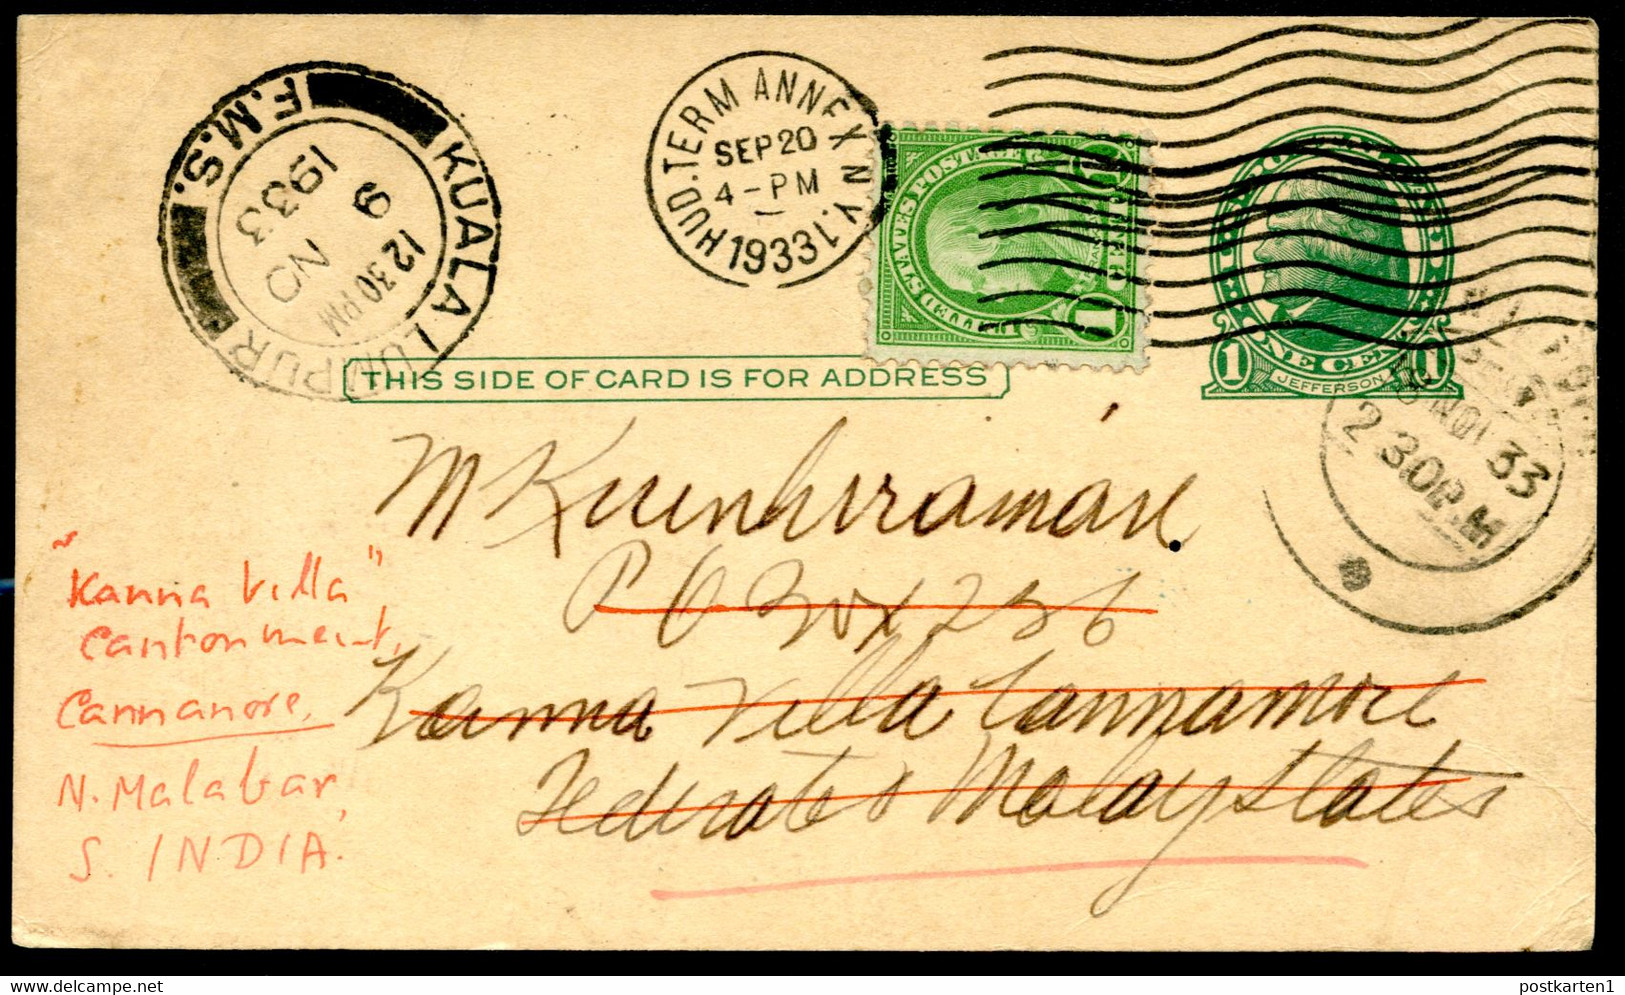 KUALA LUMPUR
F.M.S.
1933
NO
9
12 30 PM
HUD. TERM ANNEX N.Y. 1
SEP 20
4 - PM
1933
UNITED STATES POSTAGE
FRANKLIN
1 CENT 1
U.S. POSTAGE
1 ONE CENT 1
JEFFERSON
THIS SIDE OF CARD IS FOR ADDRESS
NOV 33
2 30 P.M
M Kunhiraman
P O Box 256
Kanna Villa Cannanore
Federated Malay States
"Kanna Villa"
Cantonment,
Cannanore,
N. Malabar,
S. INDIA.
postkarten1